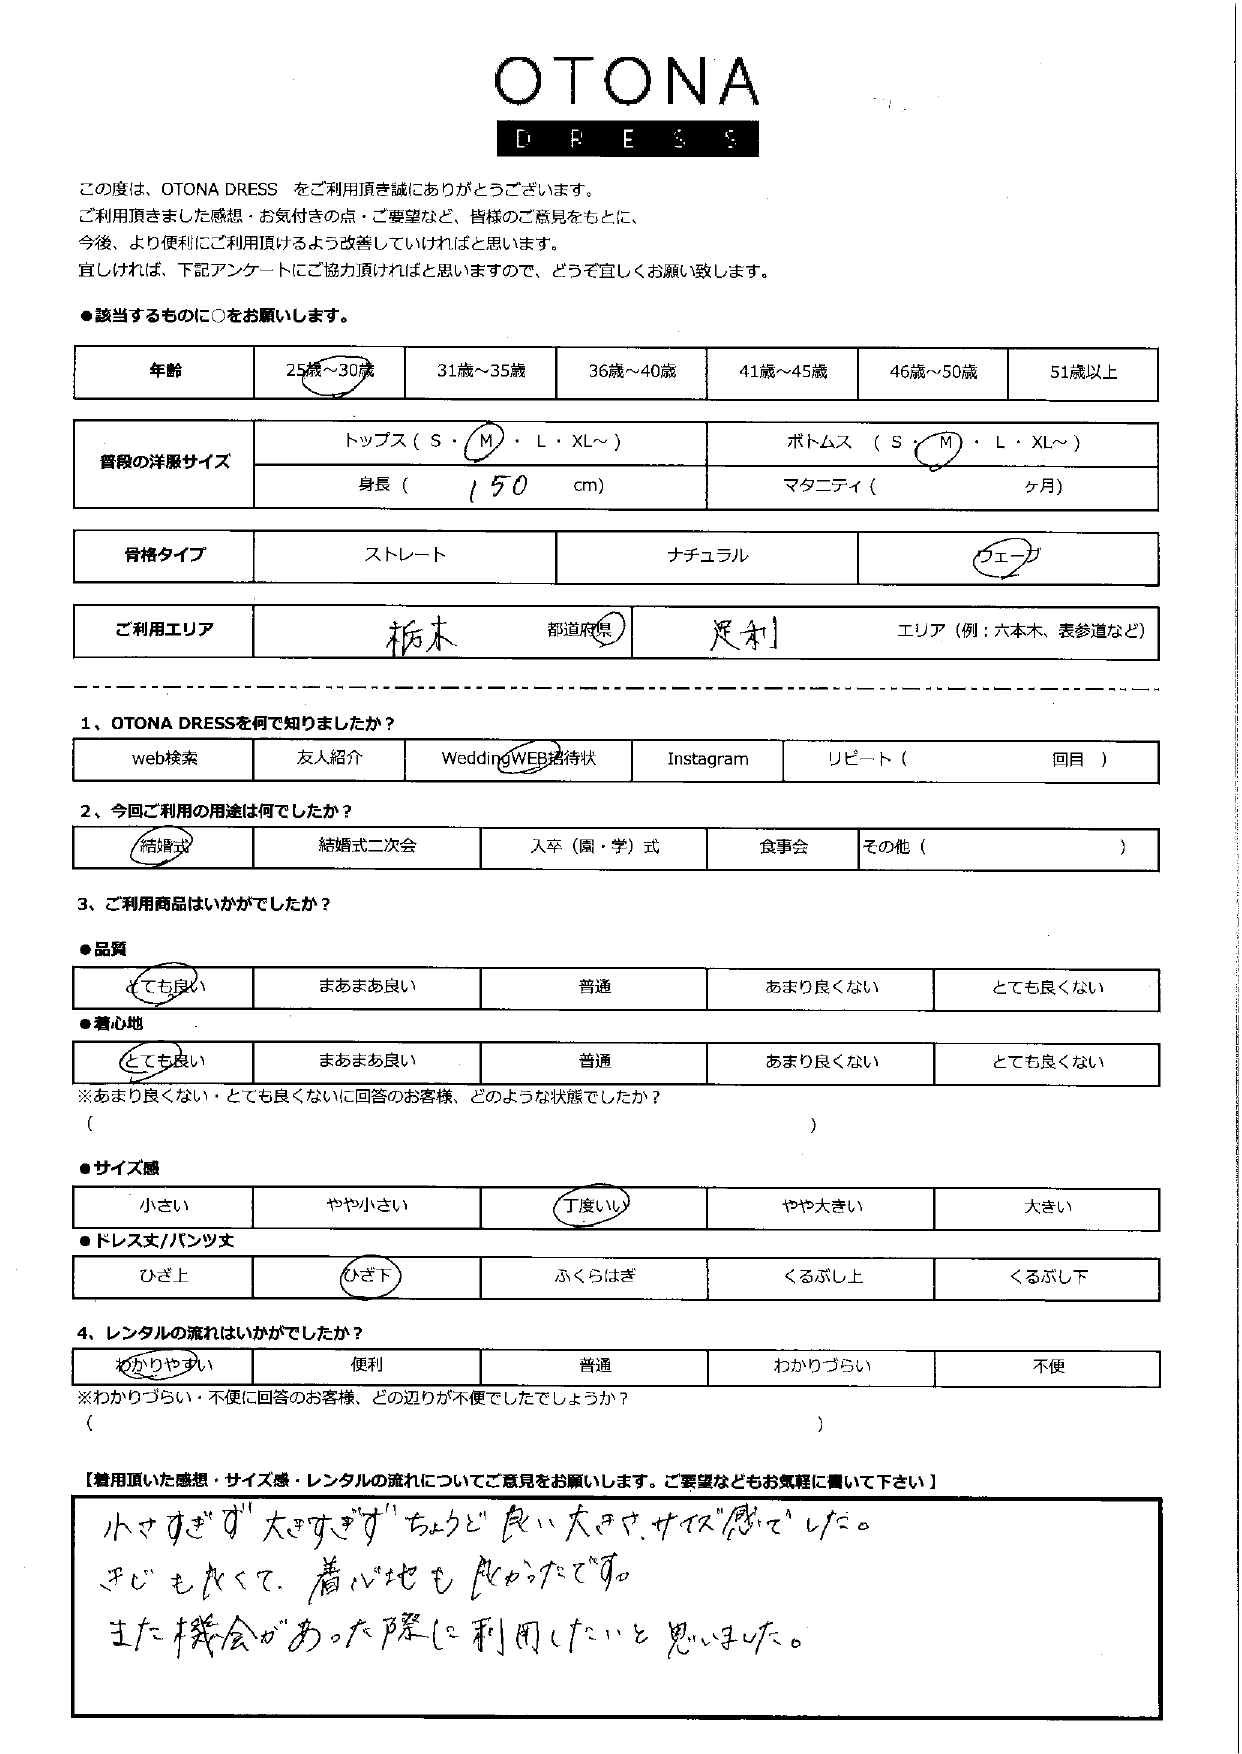 OTONA
DRESS
この度は、OTONA DRESS をご利用頂き誠にありがとうございます。
ご利用頂きました感想・お気付きの点・ご要望など、皆様のご意見をもとに、
今後、より便利にご利用頂けるよう改善していければと思います。
宜しければ、下記アンケートにご協力頂ければと思いますので、どうぞ宜しくお願い致します。
●該当するものに○をお願いします。
年齢 25歳～30歳 31歳～35歳 36歳～40歳 41歳～45歳 46歳～50歳 51歳以上
普段の洋服サイズ トップス ( S ・ M ・ L ・ XL～ ) ボトムス ( S ・ M ・ L ・ XL～ )
身長 ( 150 cm) マタニティ ( ヶ月)
骨格タイプ ストレート ナチュラル ウェーブ
ご利用エリア 栃木 都道府県 足利 エリア（例：六本木、表参道など）
1、OTONA DRESSを何で知りましたか？
web検索 友人紹介 WeddingWEB招待状 Instagram リピート ( 回目 )
2、今回ご利用の用途は何でしたか？
結婚式 結婚式二次会 入卒（園・学）式 食事会 その他 ( )
3、ご利用商品はいかがでしたか？
●品質
とても良い まあまあ良い 普通 あまり良くない とても良くない
●着心地
とても良い まあまあ良い 普通 あまり良くない とても良くない
※あまり良くない・とても良くないに回答のお客様、どのような状態でしたか？
( )
●サイズ感
小さい やや小さい 丁度いい やや大きい 大きい
●ドレス丈/パンツ丈
ひざ上 ひざ下 ふくらはぎ くるぶし上 くるぶし下
4、レンタルの流れはいかがでしたか？
わかりやすい 便利 普通 わかりづらい 不便
※わかりづらい・不便に回答のお客様、どの辺りが不便でしたでしょうか？
( )
【着用頂いた感想・サイズ感・レンタルの流れについてご意見をお願いします。ご要望などもお気軽に書いて下さい】
小さすぎず大きすぎずちょうど良い大きさ、サイズ感でした。
きじも良くて、着心地も良かったです。
また機会があった際に利用したいと思いました。